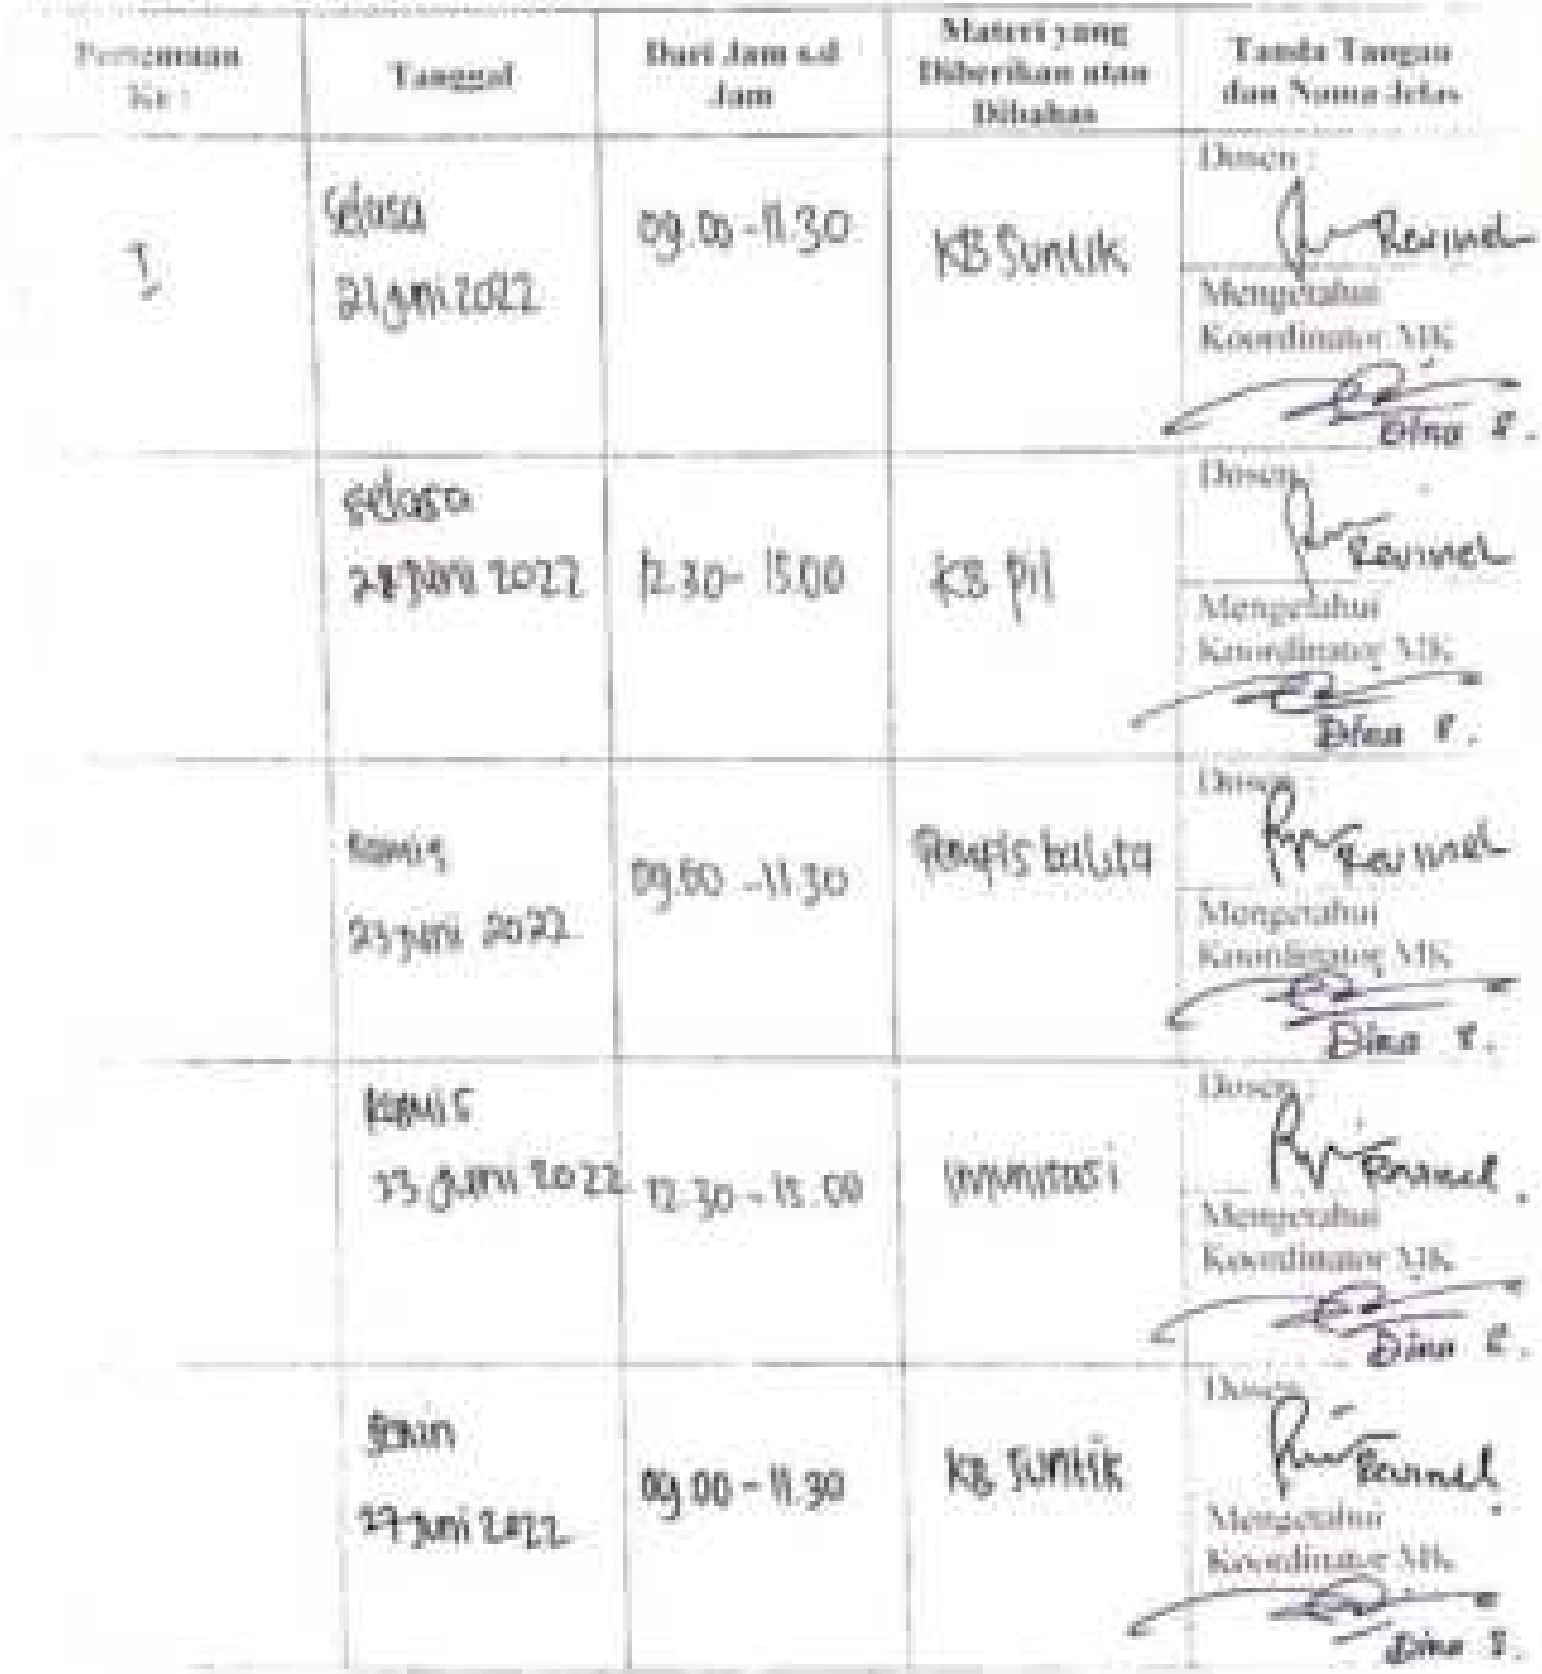 Pertemuan
Ke :
Tanggal
Dari Jam s.d
Jam
Materi yang
Diberikan atau
Dibahas
Tanda Tangan
dan Nama Jelas
I
Selasa
21 Juni 2022
09.00 - 11.30
KB Suntik
Dosen :
Revinel
Mengetahui
Koordinator MK
Dina R.
Selasa
28 Juni 2022
12.30 - 15.00
KB Pil
Dosen
Revinel
Mengetahui
Koordinator MK
Dina R.
Kamis
23 Juni 2022
09.00 - 11.30
balita
Dosen
Revinel
Mengetahui
Koordinator MK
Dina R.
Kamis
23 Juni 2022
12.30 - 15.00
Imunisasi
Dosen :
Revinel
Mengetahui
Koordinator MK
Dina R.
Senin
27 Juni 2022
09.00 - 11.30
KB Suntik
Dosen
Revinel
Mengetahui
Koordinator MK
Dina R.